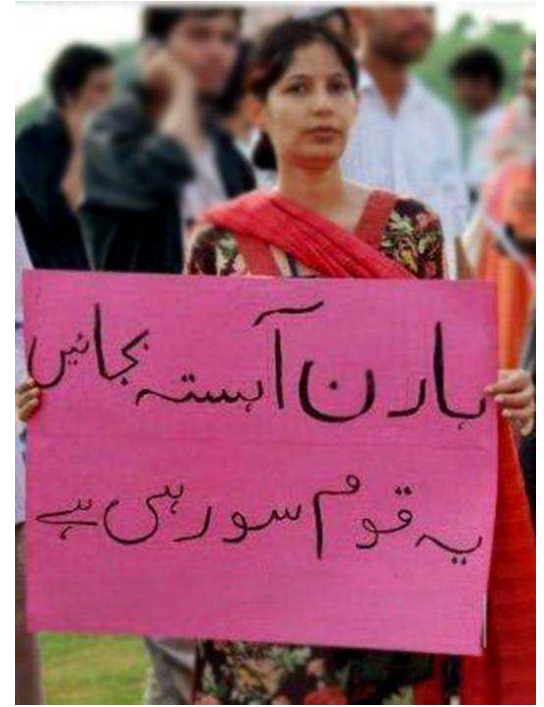 ہارن آہستہ بجائیں
یہ قوم سو رہی ہے